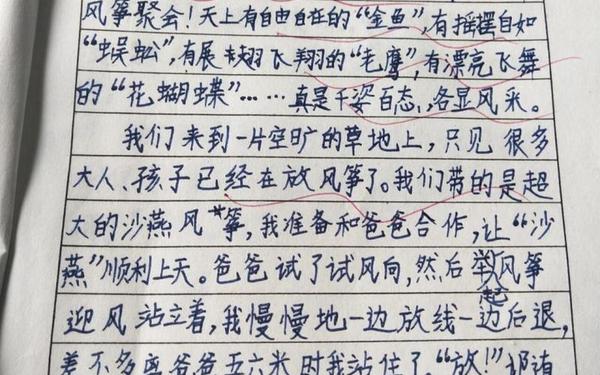 风筝聚会！天上有自由自在的“金鱼”,有摇摆自如
“蜈蚣”,有展翅飞翔的“老鹰”,有漂亮飞舞
的“花蝴蝶”……真是千姿百态,各显风采。
我们来到一片空旷的草地上，只见很多
大人、孩子已经在放风筝了。我们带的是超
大的沙燕风筝，我准备和爸爸合作，让“沙
燕”顺利上天。爸爸试了试风向，然后举起风筝
迎风站立着，我慢慢地一边放线一边后退，
差不多离爸爸五六米时我站住了，“放！”